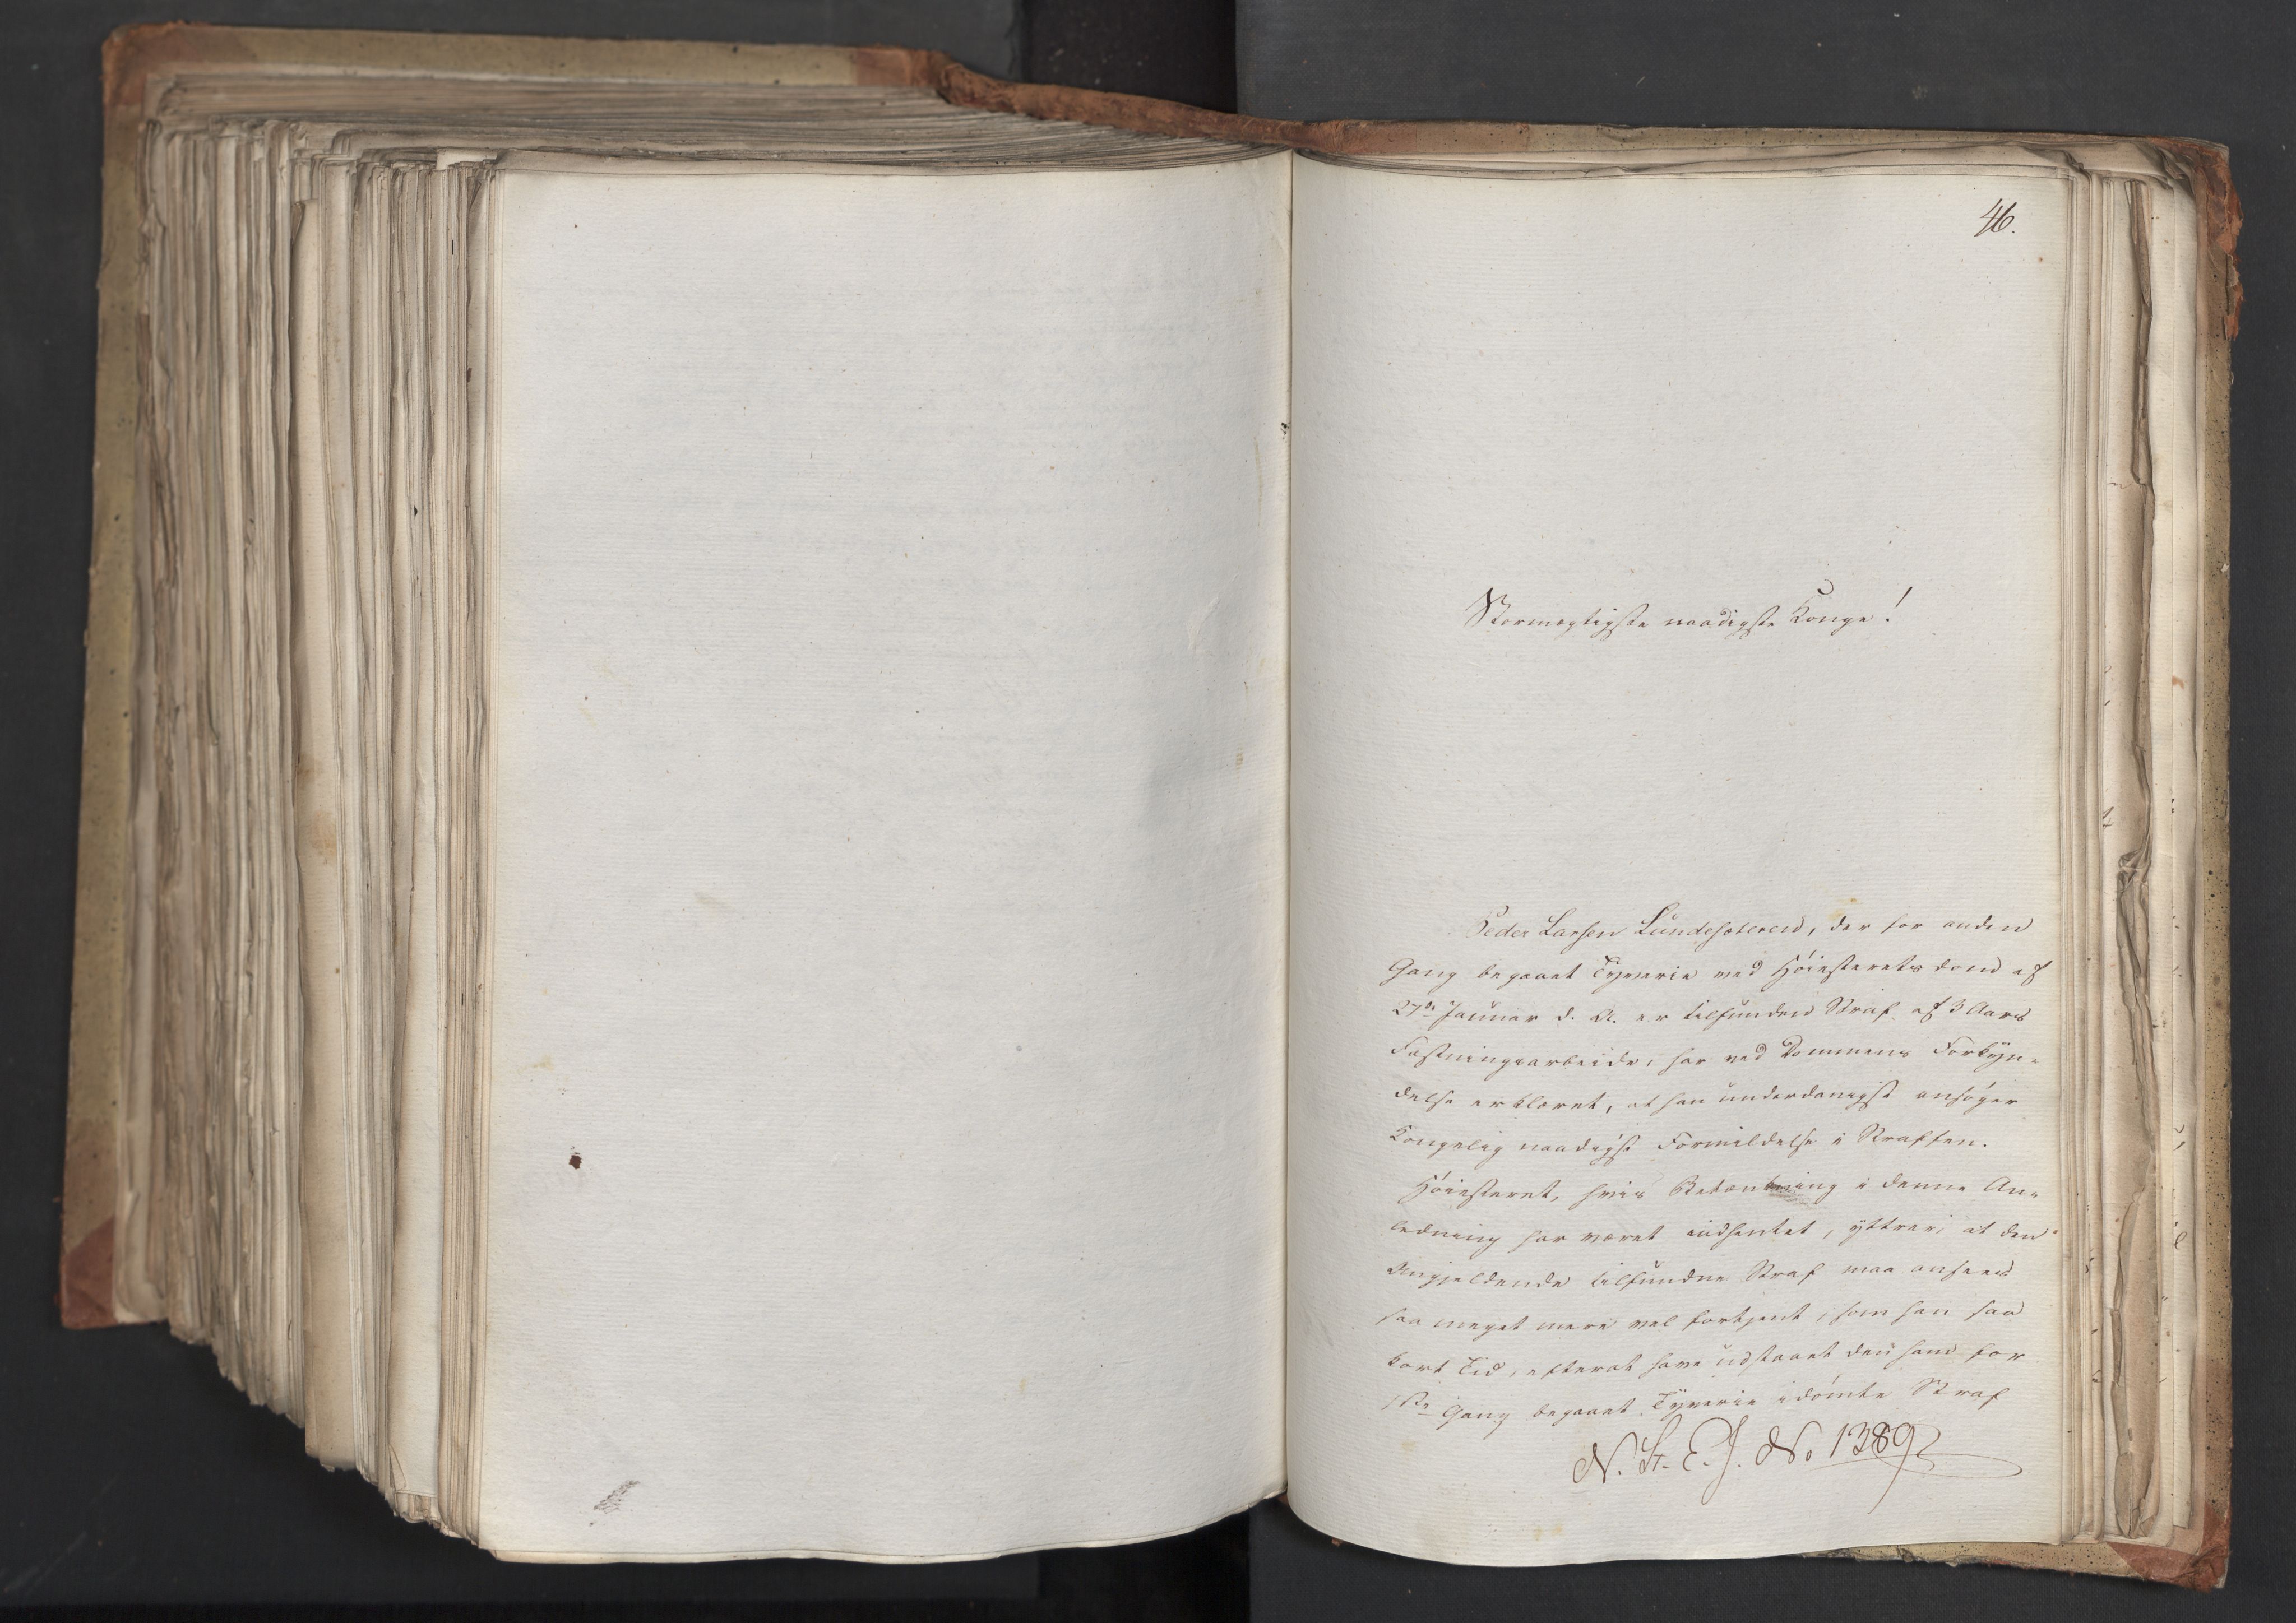 46.
Stormægtigste naadigste Konge!
Peder Larsen Lundesæteren, der for anden
Gang begaaet Tyverie ved Höiesteretsdom af
27de Januar d. A. er tilfunden Straf af 3 Aars
Fæstningsarbeide, har ved Dommens Forkyn-
delse erklæret, at han underdanigst ansöger
Kongelig naadigst Formildelse i Straffen.
Höiesteret, hvis Betænkning i denne An-
ledning har været indhentet, yttrer, at den
Angjeldende tilfundne Straf maa ansees
saa meget mere vel fortjent, som han saa
kort Tid, efterat have udstaaet den ham for
1ste Gang begaaet Tyverie idömte Straf
N. St. E. J. No 1389